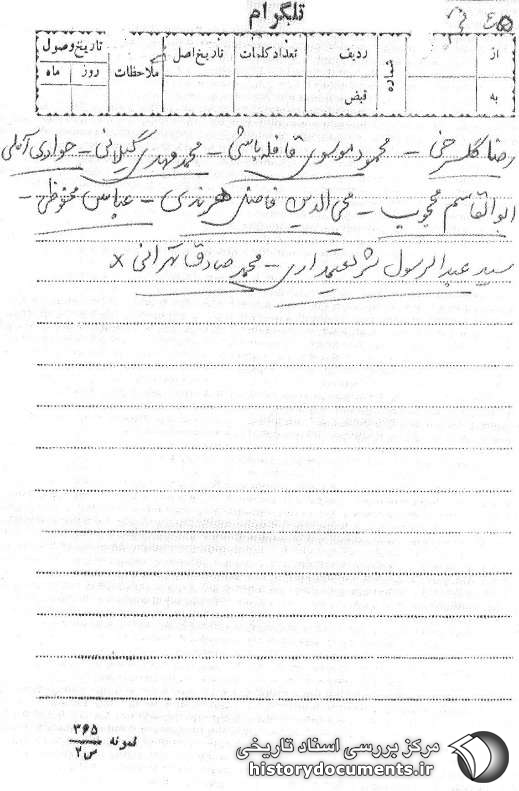 تلگرام
از
به
شماره
ردیف
قبض
تعداد کلمات
تاریخ اصل
ملاحظات
تاریخ وصول
روز
ماه
رضا گلسرخی - محمود موسوی قافله‌باشی - محمد مهدی گیلانی - جوادی آملی
ابوالقاسم محجوب - محی الدین فاضل هرندی - عباس محفوظی -
سید عبدالرسول شریعتمداری - محمد صادق تهرانی x
نمونه ۳۶۵
س۲
مرکز بررسی اسناد تاریخی
historydocuments.ir